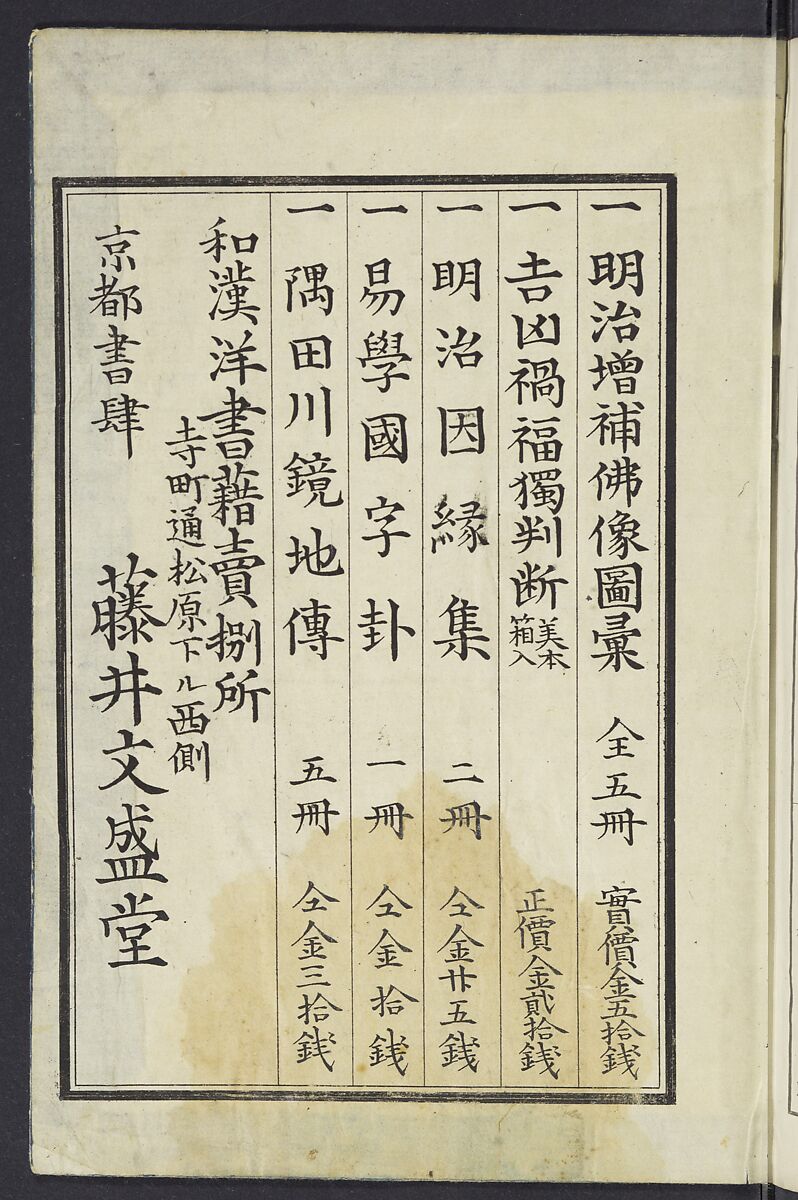 一 明治增補佛像圖彙 全五冊 實價金五拾銭
一 吉凶禍福獨判断 美本箱入 正價金貮拾銭
一 明治因縁集 二冊 仝金廿五銭
一 易學國字卦 一冊 仝金拾銭
一 隅田川鏡地傳 五冊 仝金三拾銭
和漢洋書藉賣捌所
寺町通松原下ル西側
京都書肆 藤井文盛堂